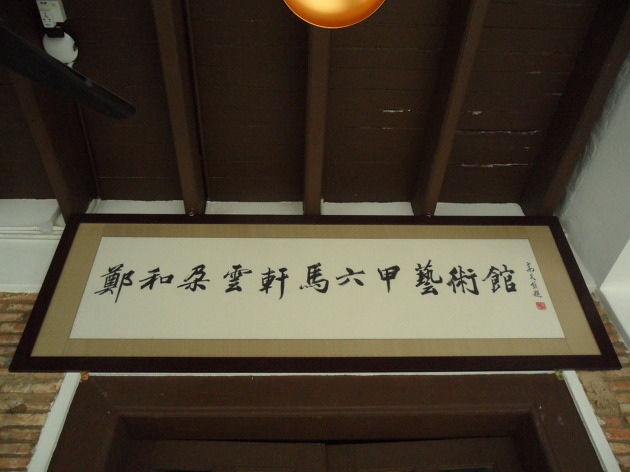 鄭和朵雲軒馬六甲藝術館